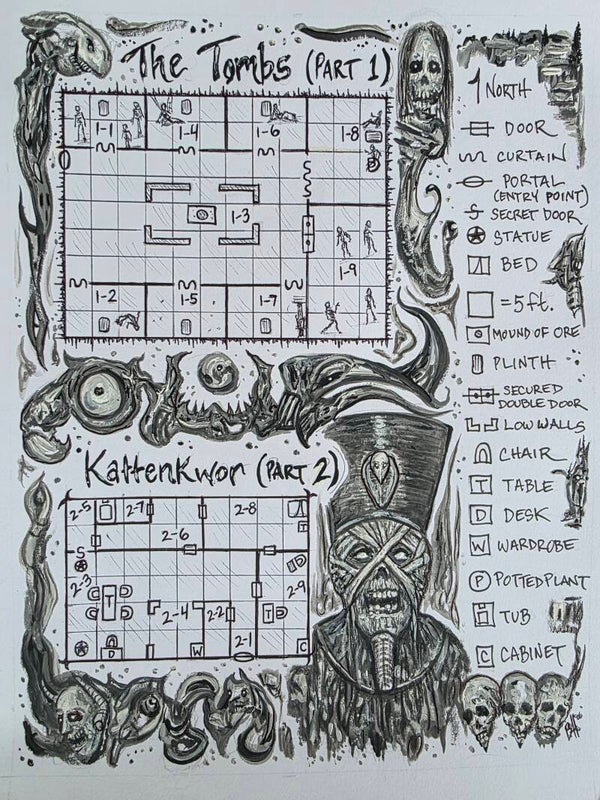 The Tombs (PART 1)
1-1
1-4
1-6
1-8
1-3
1-9
1-2
1-5
1-7
Kattenkwor (PART 2)
2-5
2-7
2-8
2-6
2-3
2-9
2-4
2-2
2-1
T
T
T
D
D
W
C
1 NORTH
DOOR
CURTAIN
PORTAL
(ENTRY POINT)
S SECRET DOOR
STATUE
BED
=5ft.
MOUND OF ORE
PLINTH
SECURED
DOUBLE DOOR
LOW WALLS
CHAIR
T TABLE
D DESK
W WARDROBE
P POTTED PLANT
TUB
C CABINET